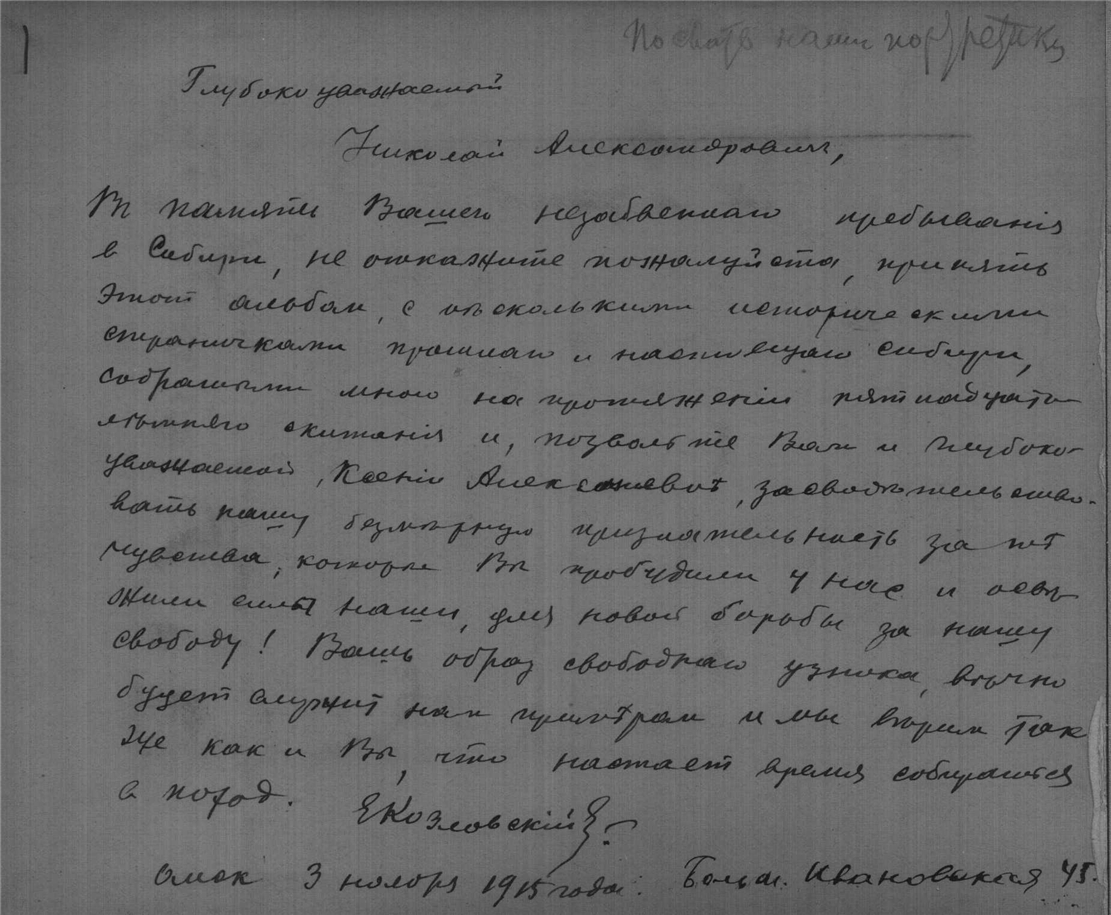 Послать наши портретики
Глубокоуважаемый
Николай Александрович,
В память Вашего незабвеннаго пребыванія
в Сибири, не откажите пожалуйста, принять
этот альбом, с нѣсколькими историческими
страничками прошлаго и настоящаго Сибири,
собранными мною на протяженіи пятнадцати
лѣтняго скитанія и, позвольте Вам и глубоко-
уважаемой, Ксеніи Алексѣевнѣ, засвидѣтельство-
вать нашу безмѣрную признательность за тѣ
чувства, которые Вы пробудили у нас и освѣ
жили силы наши, для новой борьбы за нашу
свободу! Вашь образ свободнаго узника, вѣчно
будет служит нам примѣром и мы вѣрим так
же как и Вы, что настает время собираться
в поход. ЕКозловскій
Омск 3 ноября 1915 года. Больш. Ивановская 45.